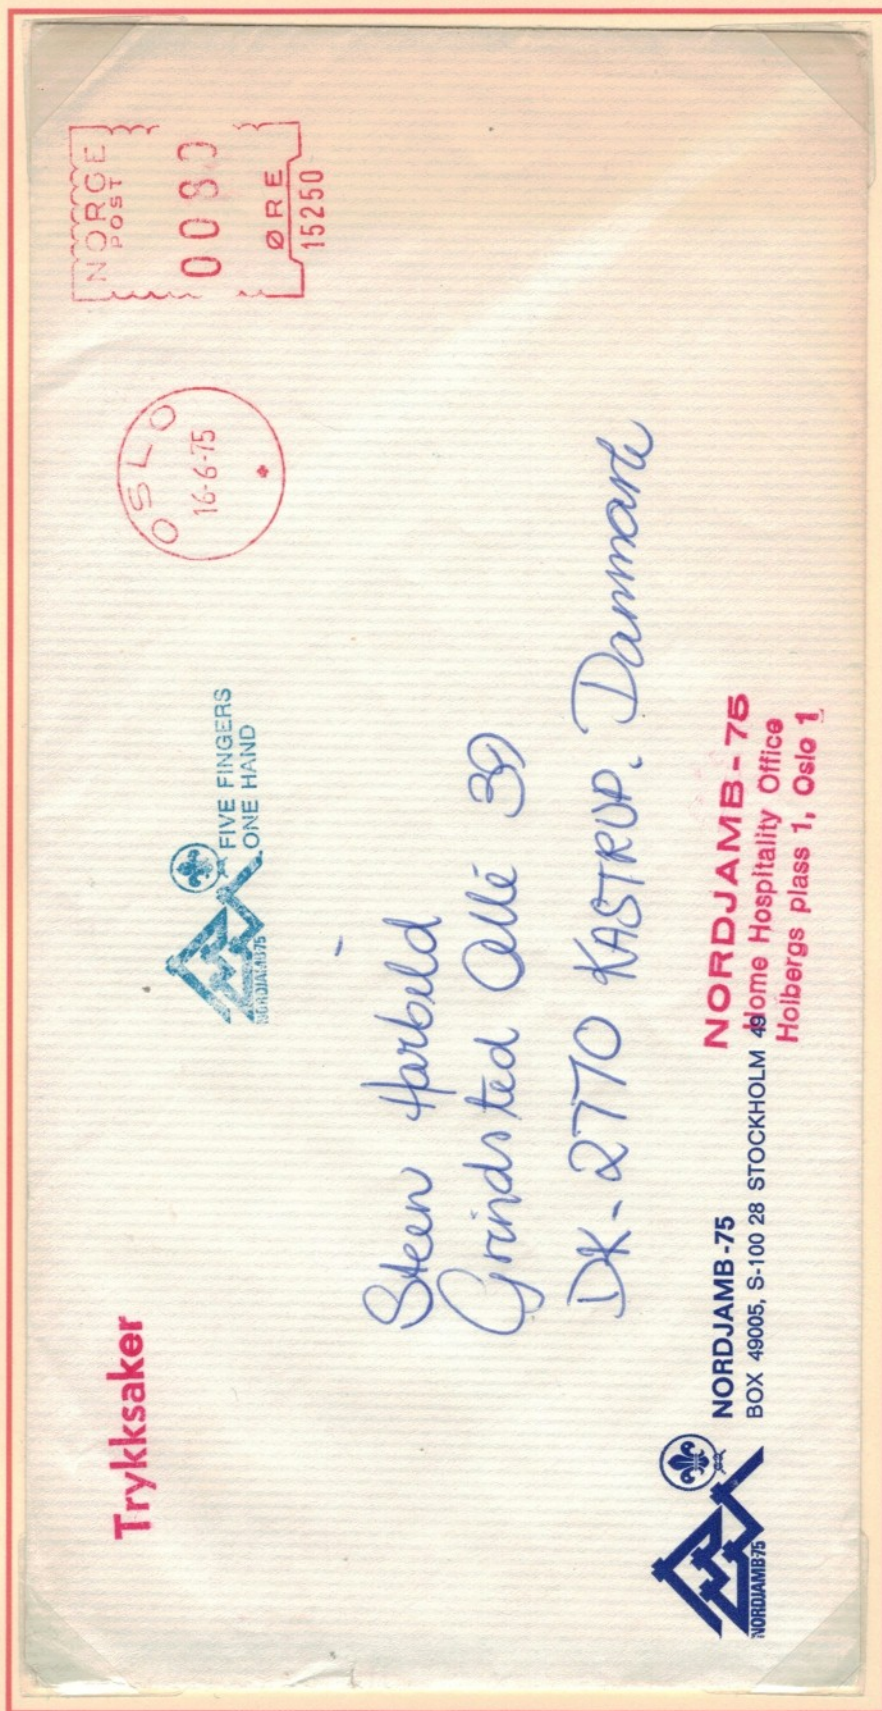 Trykksaker
NORDJAMB75
FIVE FINGERS
ONE HAND
OSLO
16-6-75
NORGE
POST
0080
ØRE
15250
Steen Harbild
Grindsted Allé 39
DK-2770 KASTRUP. Danmark
NORDJAMB75
NORDJAMB-75
BOX 49005, S-100 28 STOCKHOLM 49
NORDJAMB-75
Home Hospitality Office
Holbergs plass 1, Oslo 1